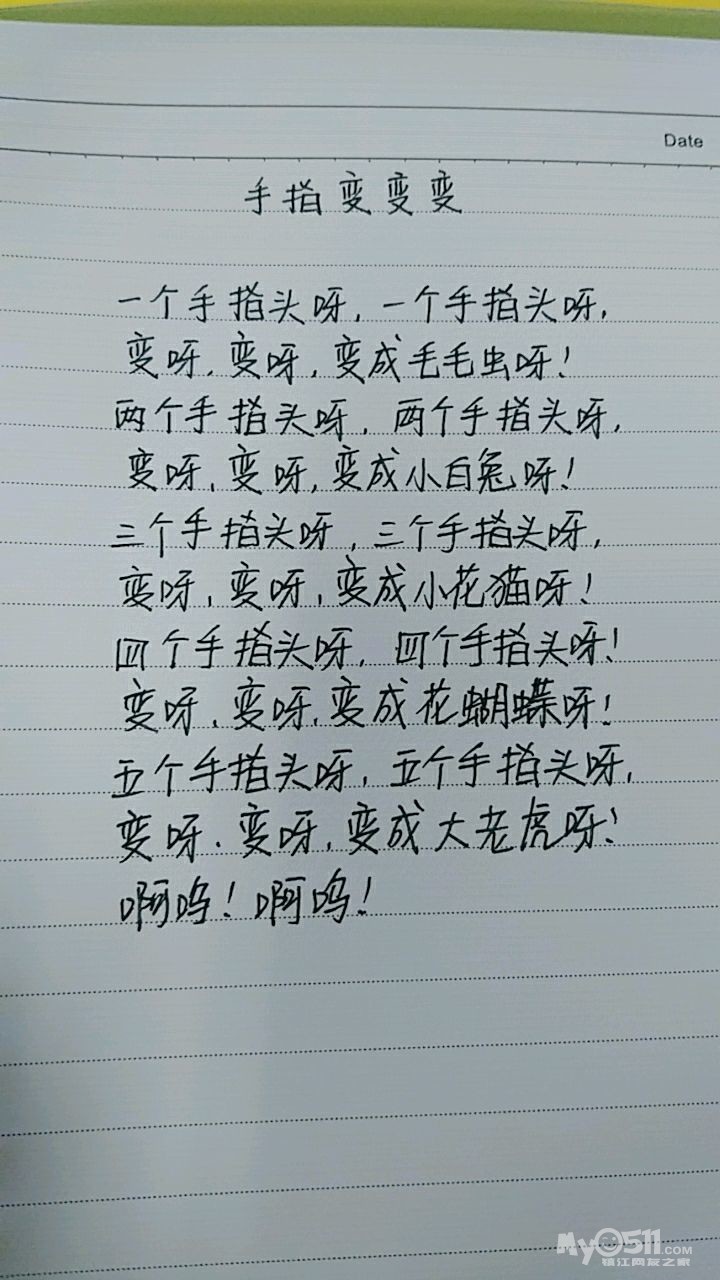 Date
手指变变变
一个手指头呀,一个手指头呀,
变呀,变呀,变成毛毛虫呀!
两个手指头呀,两个手指头呀,
变呀,变呀,变成小白兔呀!
三个手指头呀,三个手指头呀,
变呀,变呀,变成小花猫呀!
四个手指头呀,四个手指头呀!
变呀,变呀,变成花蝴蝶呀!
五个手指头呀,五个手指头呀,
变呀.变呀,变成大老虎呀!
啊呜!啊呜!
My0511.COM
镇江网友之家